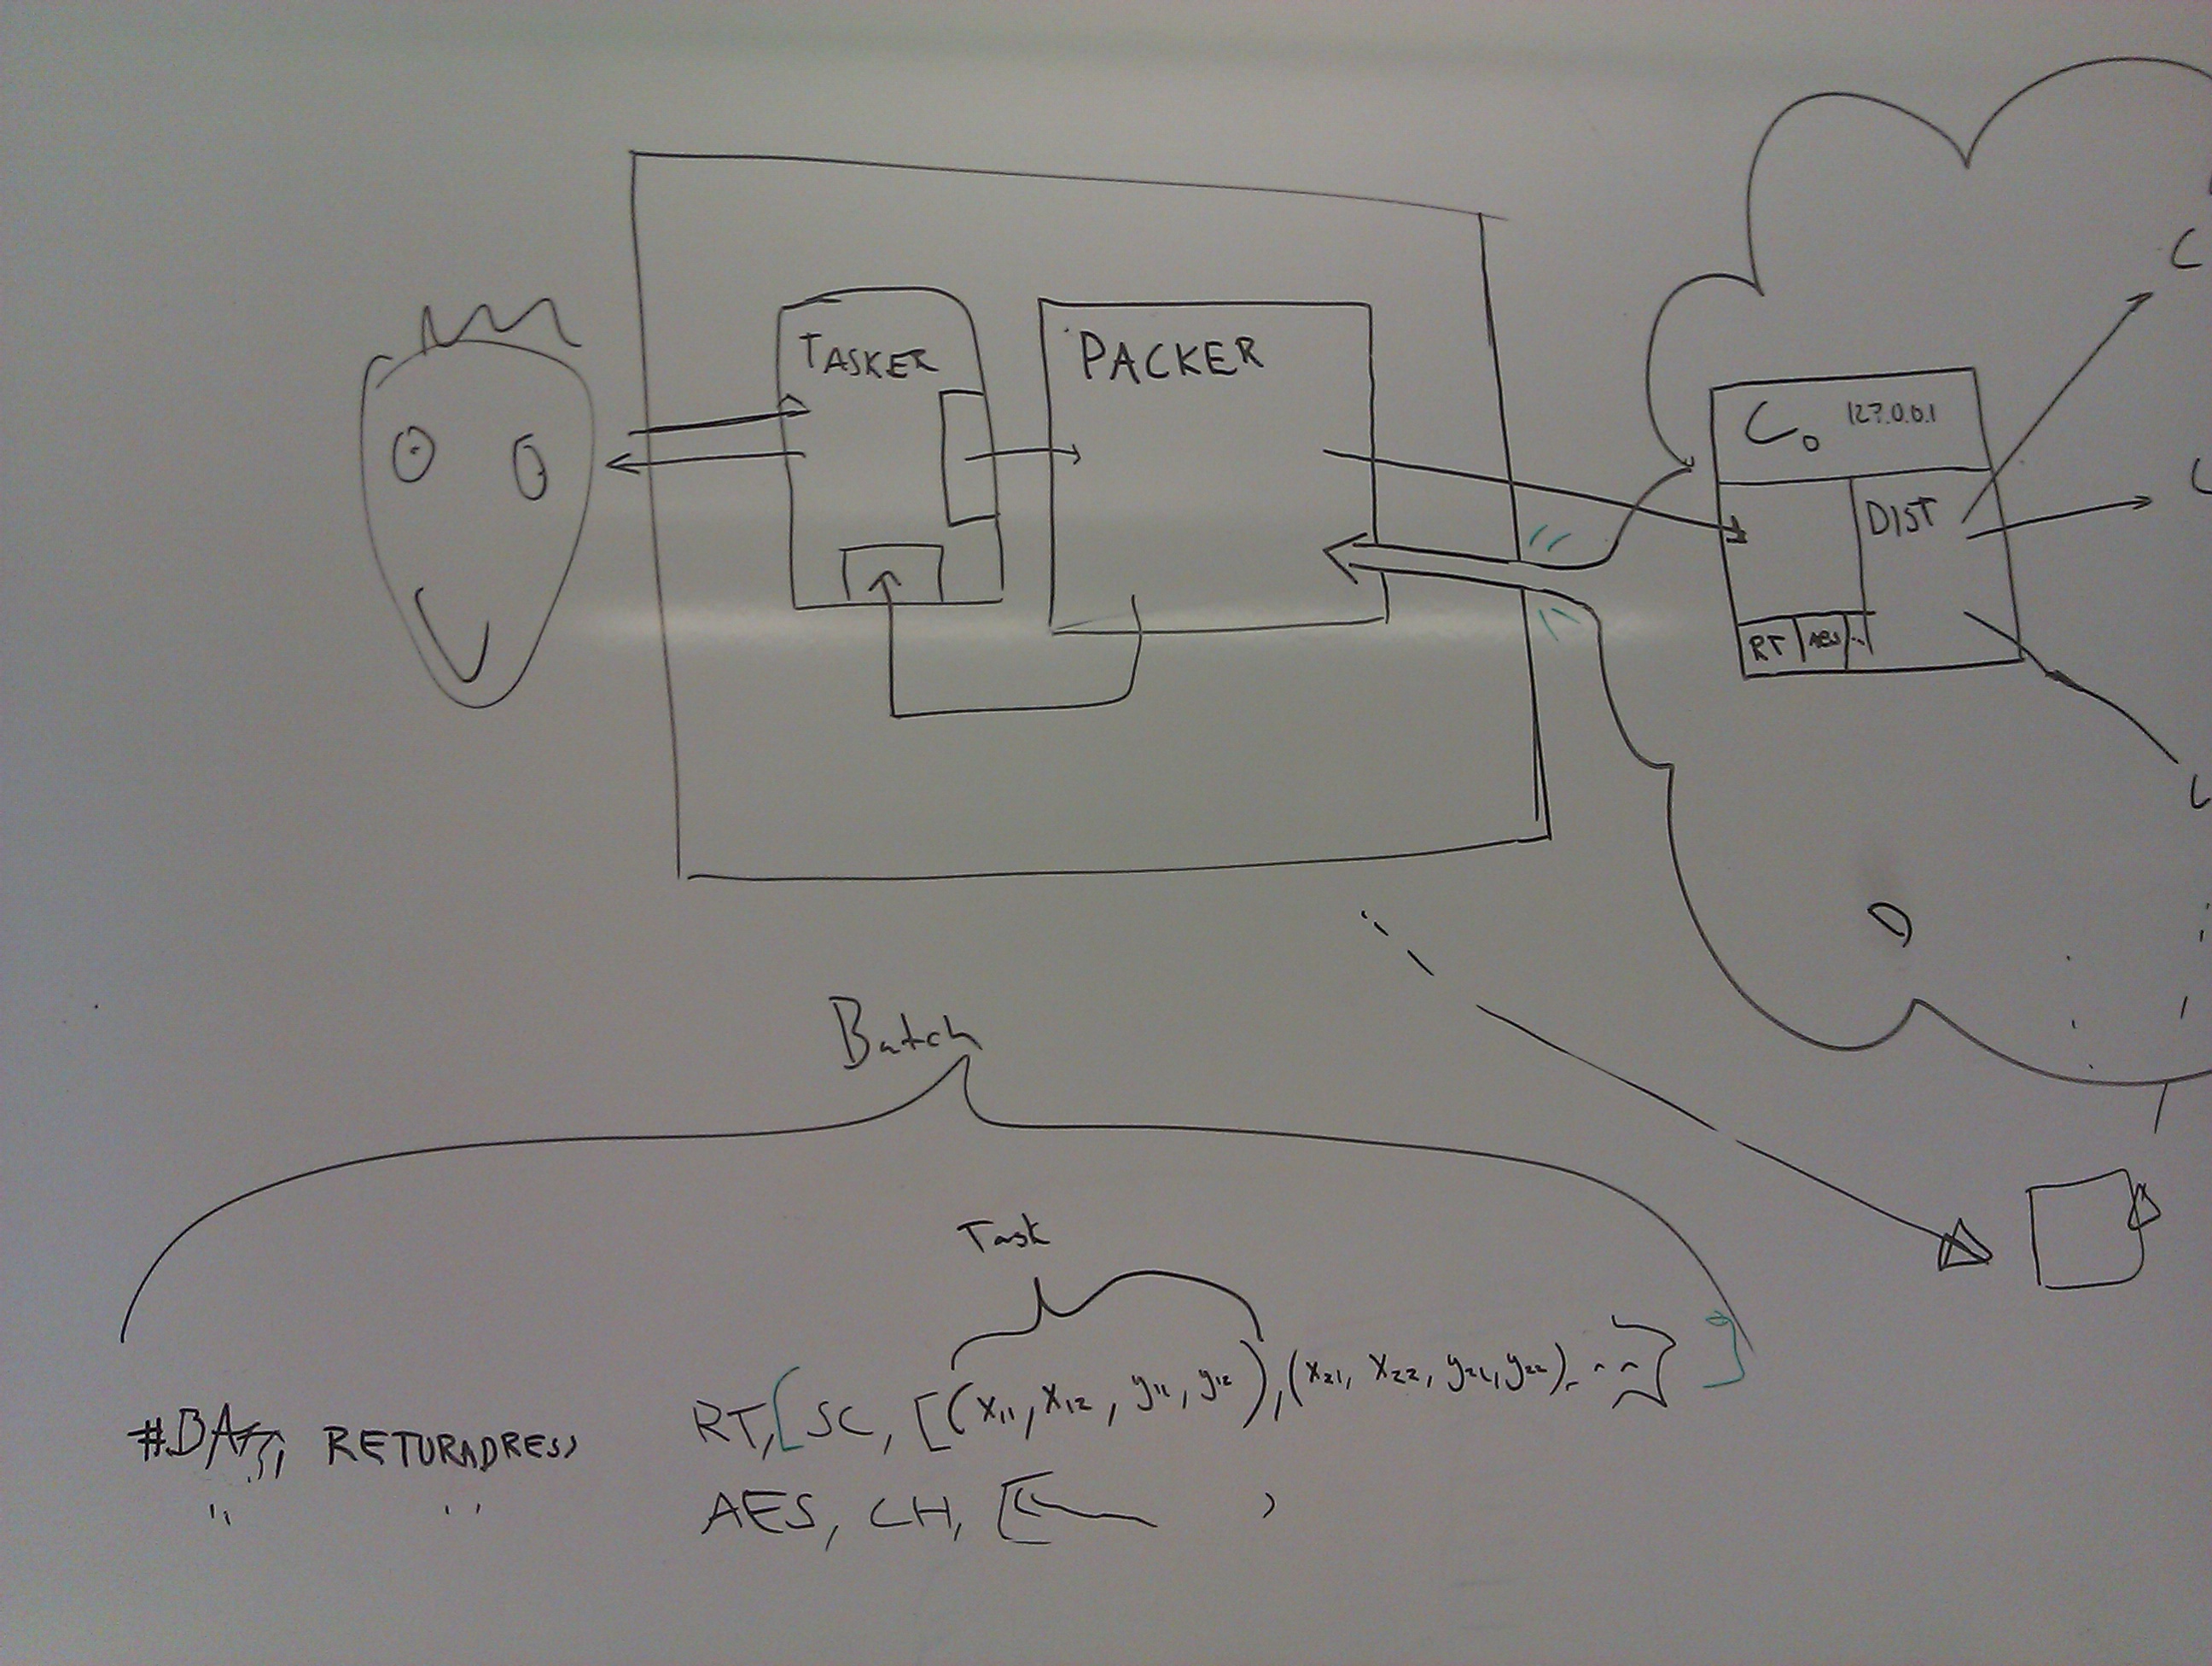 TASKER
PACKER
C₀ 127.0.0.1
DIST
RT AES ..
C
D
Batch
Task
RETURADRESS
RT, [SC, [(x₁₁, x₁₂, y₁₁, y₁₂), (x₂₁, x₂₂, y₂₁, y₂₂), ...]]
AES, CH, [